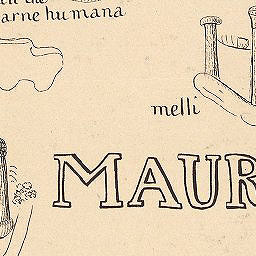 arne humana
melli
MAUR